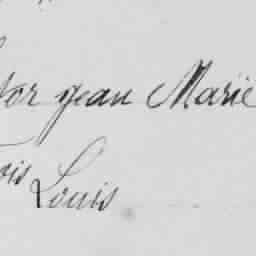 tor jean Marie
ois Louis